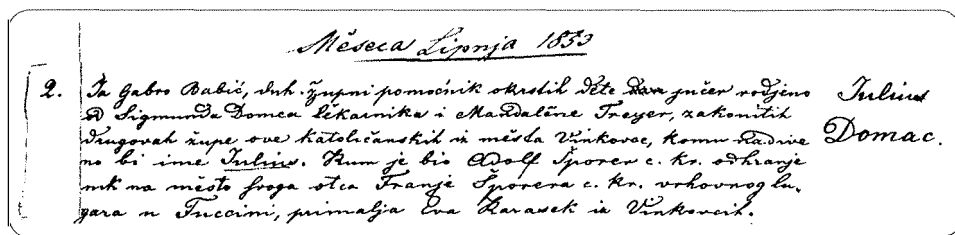 Měseca Lipnja 1853
2. Ja Gabro Babić, duh. župni pomoćnik okrstih děte jučer rodjeno Julius
od Sigmunda Domca lěkarnika i Mandalěne Freyer, zakonitih
drugovah župe ove katoličanskih iz města Vinkovce, komu nadive Domac.
no bi ime Julius. Kum je bio Adolf Šporer c. kr. odhranje
nik na město svoga otca Franje Šporera c. kr. vrhovnog lu-
gara u Fuccini, primalja Eva Karasek iz Vinkovcih.